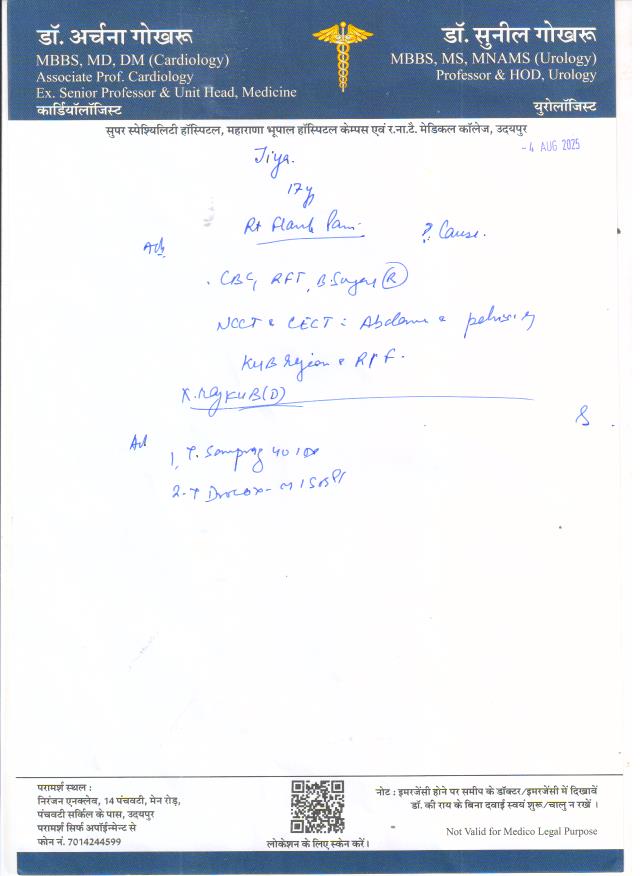 डॉ. अर्चना गोखरू
MBBS, MD, DM (Cardiology)
Associate Prof. Cardiology
Ex. Senior Professor & Unit Head, Medicine
कार्डियॉलॉजिस्ट
डॉ. सुनील गोखरू
MBBS, MS, MNAMS (Urology)
Professor & HOD, Urology
युरोलॉजिस्ट
सुपर स्पेश्यिलिटी हॉस्पिटल, महाराणा भूपाल हॉस्पिटल केम्पस एवं र.ना.टै. मेडिकल कॉलेज, उदयपुर
-4 AUG 2025
Jiya.
17y
Rt Flank Pain
? Cause.
Adv
CBC, RFT, B. Sugar (R)
NCCT & CECT : Abdomen & pelvis
KUB region & RPF.
X.ray KUB (D)
Adv
1, T.
2. T
परामर्श स्थल :
निरंजन एनक्लेव, 14 पंचवटी, मेन रोड़,
पंचवटी सर्किल के पास, उदयपुर
परामर्श सिर्फ अपॉईन्मेन्ट से
फोन नं. 7014244599
लोकेशन के लिए स्केन करें।
नोट : इमरजेंसी होने पर समीप के डॉक्टर/इमरजेंसी में दिखावें
डॉ. की राय के बिना दवाई स्वयं शुरू/चालु न रखें ।
Not Valid for Medico Legal Purpose